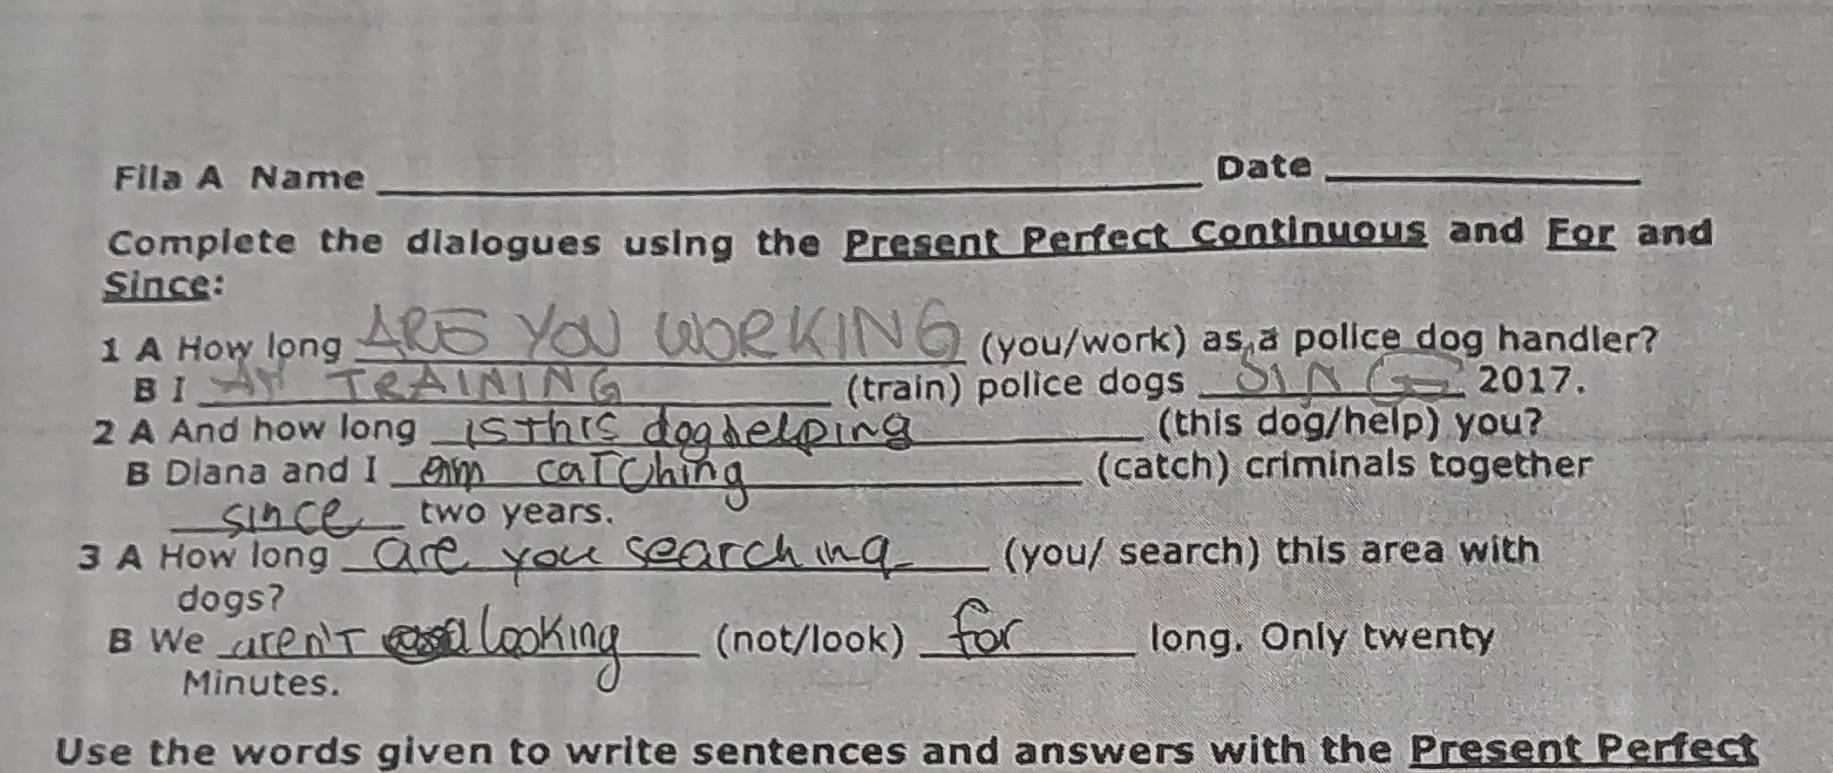 Fila A Name Date
Complete the dialogues using the Present Perfect Continuous and For and
Since:
1 A How long ARE YOU WORKING (you/work) as a police dog handler?
B I AM TRAINING (train) police dogs SINCE 2017.
2 A And how long is this dog helping (this dog/help) you?
B Diana and I am catching (catch) criminals together
since two years.
3 A How long are you searching (you/ search) this area with
dogs?
B We aren't looking (not/look) for long. Only twenty
Minutes.
Use the words given to write sentences and answers with the Present Perfect